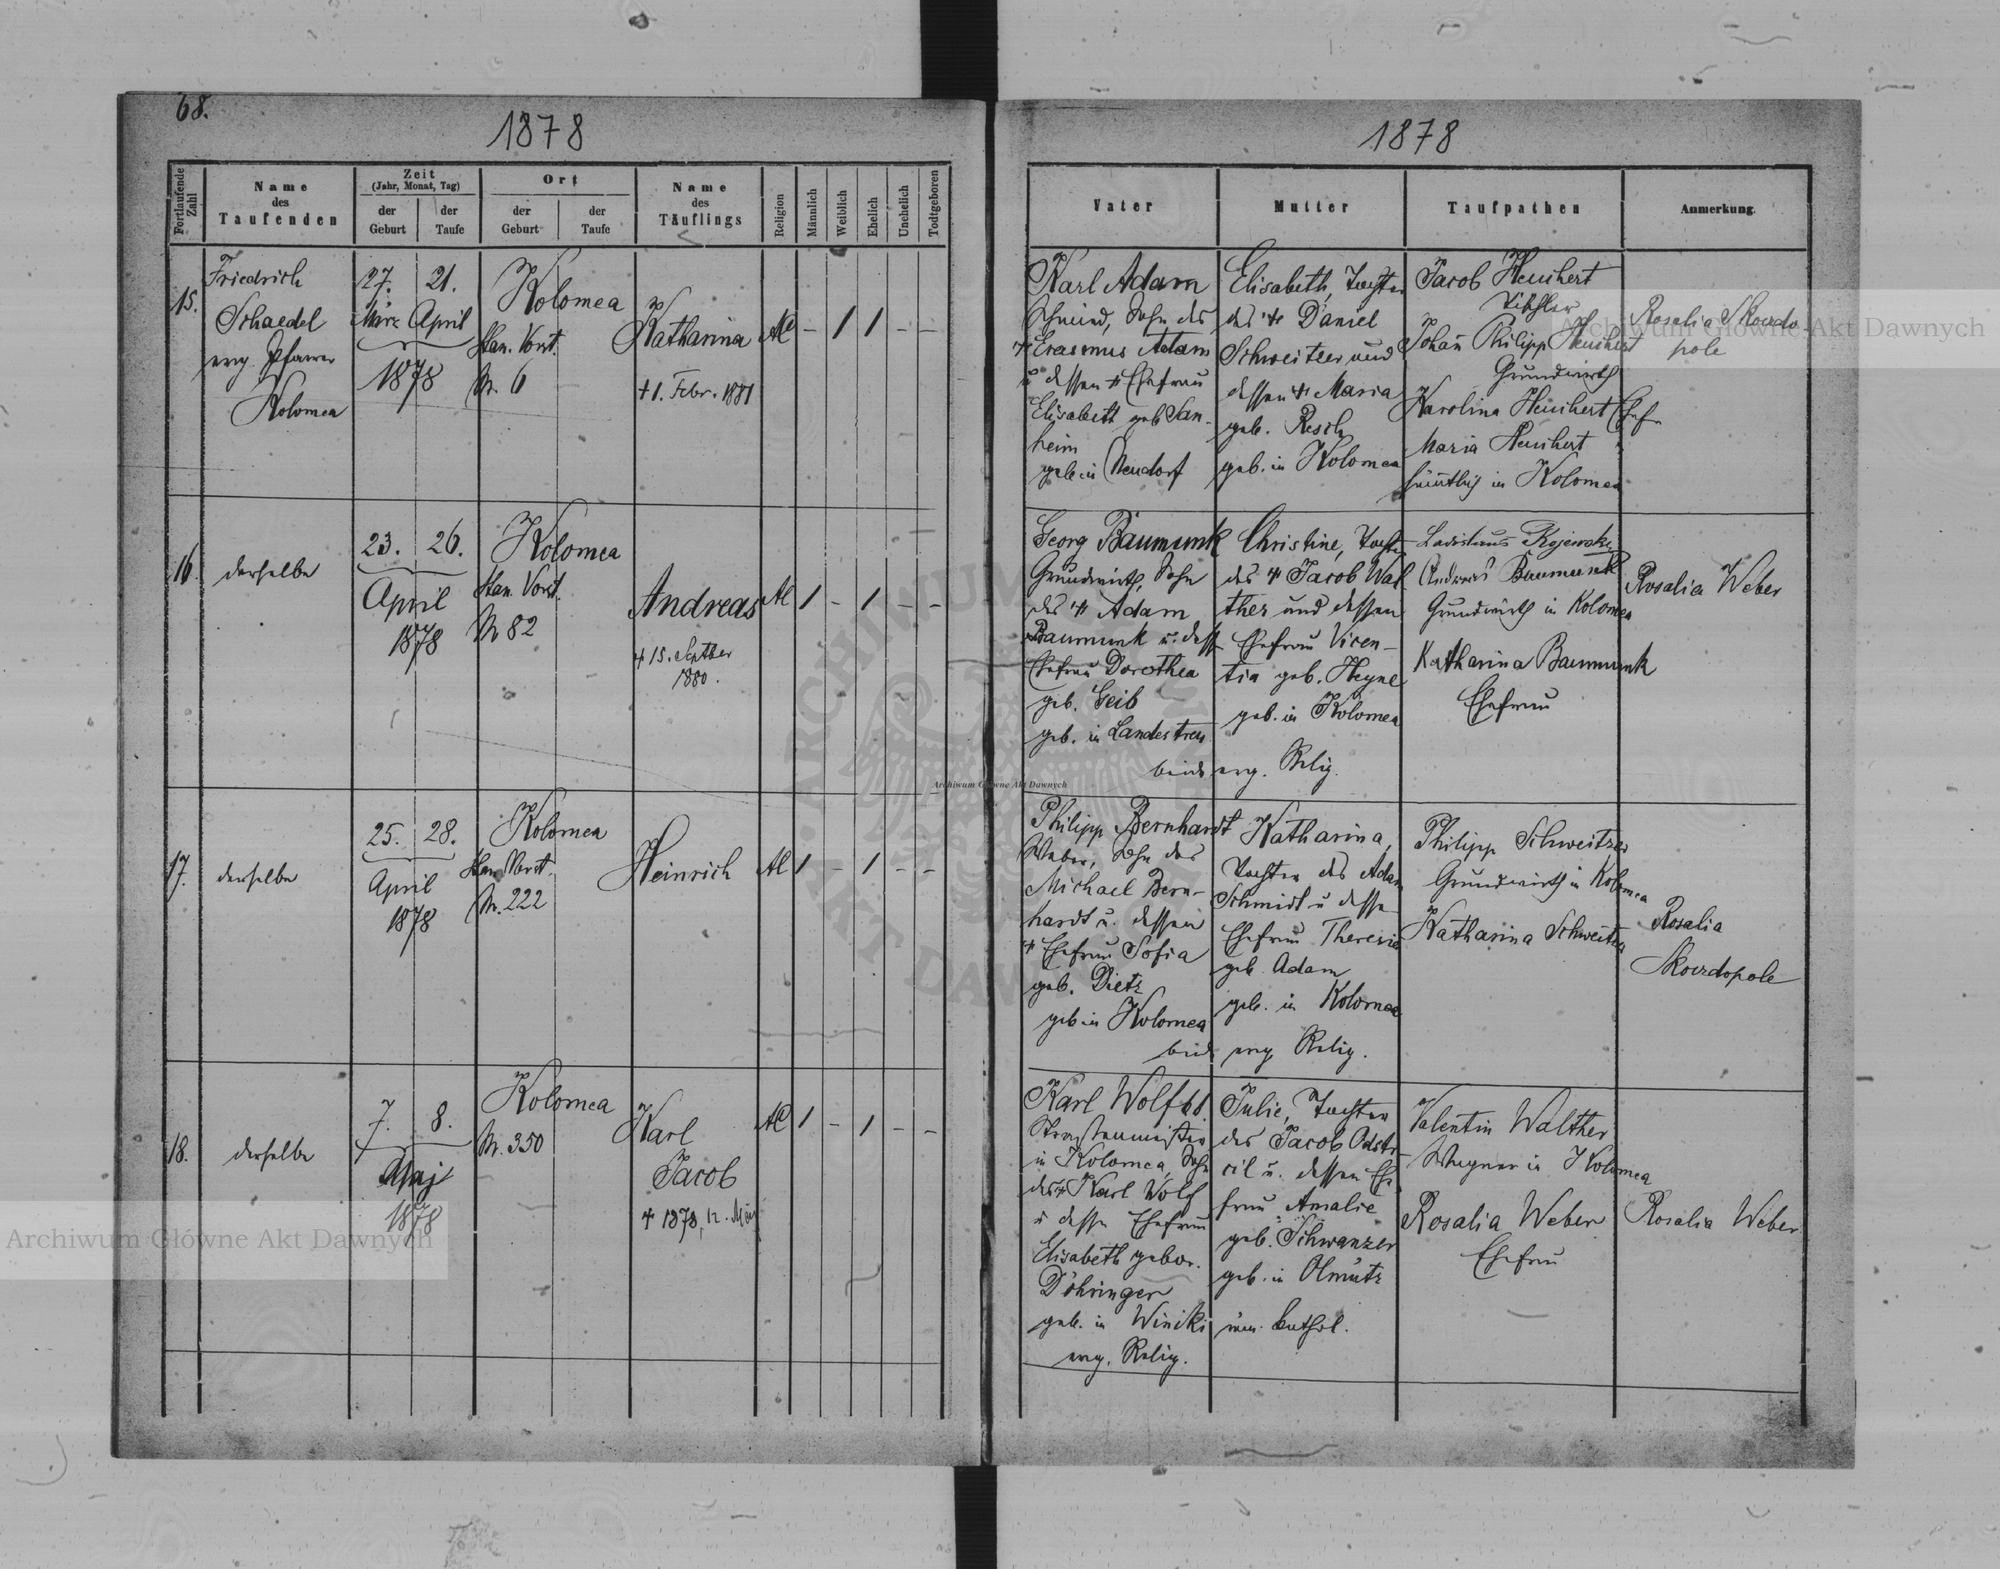 68.
1878
1878
Fortlaufende Zahl
Name des Taufenden
Zeit (Jahr, Monat, Tag)
der Geburt
der Taufe
Ort
der Geburt
der Taufe
Name des Täuflings
Religion
Männlich
Weiblich
Ehelich
Unehelich
Todtgeboren
Vater
Mutter
Taufpathen
Anmerkung.
15.
Friedrich
Schaedel
evg. Pfarrer
Kolomea
27. 21.
März April
1878
Kolomea
Stan. Vorst.
Nr. 6
Katharina
+ 1. Febr. 1881
AC – 1 1 – –
Karl Adam
Schmied, Sohn des
+ Erasmus Adam
u dessen + Ehefrau
Elisabeth geb San-
heim
geb in Neudorf
Elisabeth, Tochter
des + Daniel
Schweitzer und
dessen + Maria
geb. Resch
geb. in Kolomea
Jacob Heuchert
Tischler
Johan Philipp Heuchert
Grundwirth
Karolina Heuchert Ehef.
Maria Heuchert "
sämtlich in Kolomea
Rosalia Skordo
pole
16.
derselbe
23. 26.
April
1878
Kolomea
Stan. Vorst.
Nr 82
Andreas
+ 15. Septber
1880.
AC 1 – 1 – –
Georg Baumunk
Grundwirth, Sohn
des + Adam
Baumunk u. dess
Ehefrau Dorothea
geb. Geib
geb. in Landestreu
Christine, Tochter
des + Jacob Wal
ther und dessen
Ehefrau Vicen-
tia geb. Heyne
geb. in Kolomea
beide evg. Relig.
Ladislaus
Andreas Baumunk
Grundwirth in Kolomea
Katharina Baumunk
Ehefrau
Rosalia Weber
17.
derselbe
25. 28.
April
1878
Kolomea
Stan. Vorst.
Nr. 222
Heinrich
AC 1 – 1 – –
Philipp Bernhardt
Weber, Sohn des
Michael Bern-
hardt u. dessen
+ Ehefrau Sofia
geb. Dietz
geb in Kolomea
Katharina,
Tochter des Adam
Schmidt u desse
Ehefrau Theresia
geb. Adam
geb. in Kolomea
beide evg. Relig.
Philipp Schweitzer
Grundwirth in Kolomea
Katharina Schweitzer
Rosalia
Skordopole
18.
derselbe
7. 8.
Maj
1878
Kolomea
Nr. 350
Karl
Jacob
+ 1878, 12. Mai
AC 1 – 1 – –
Karl Wolf
Strassenmeister
in Kolomea, Sohn
des + Karl Wolf
u desse Ehefrau
Elisabeth gebor.
Döhringer
geb. in Winiki
evg. Relig.
Julie, Tochter
des Jacob Odstr
cil u. dessen Ehe
frau Amalie
geb. Schwanzer
geb. in Olmütz
röm. kathol.
Valentin Walther
Wagner in Kolomea
Rosalia Weber
Ehefrau
Rosalia Weber
Archiwum Główne Akt Dawnych
Archiwum Główne Akt Dawnych
Archiwum Główne Akt Dawnych